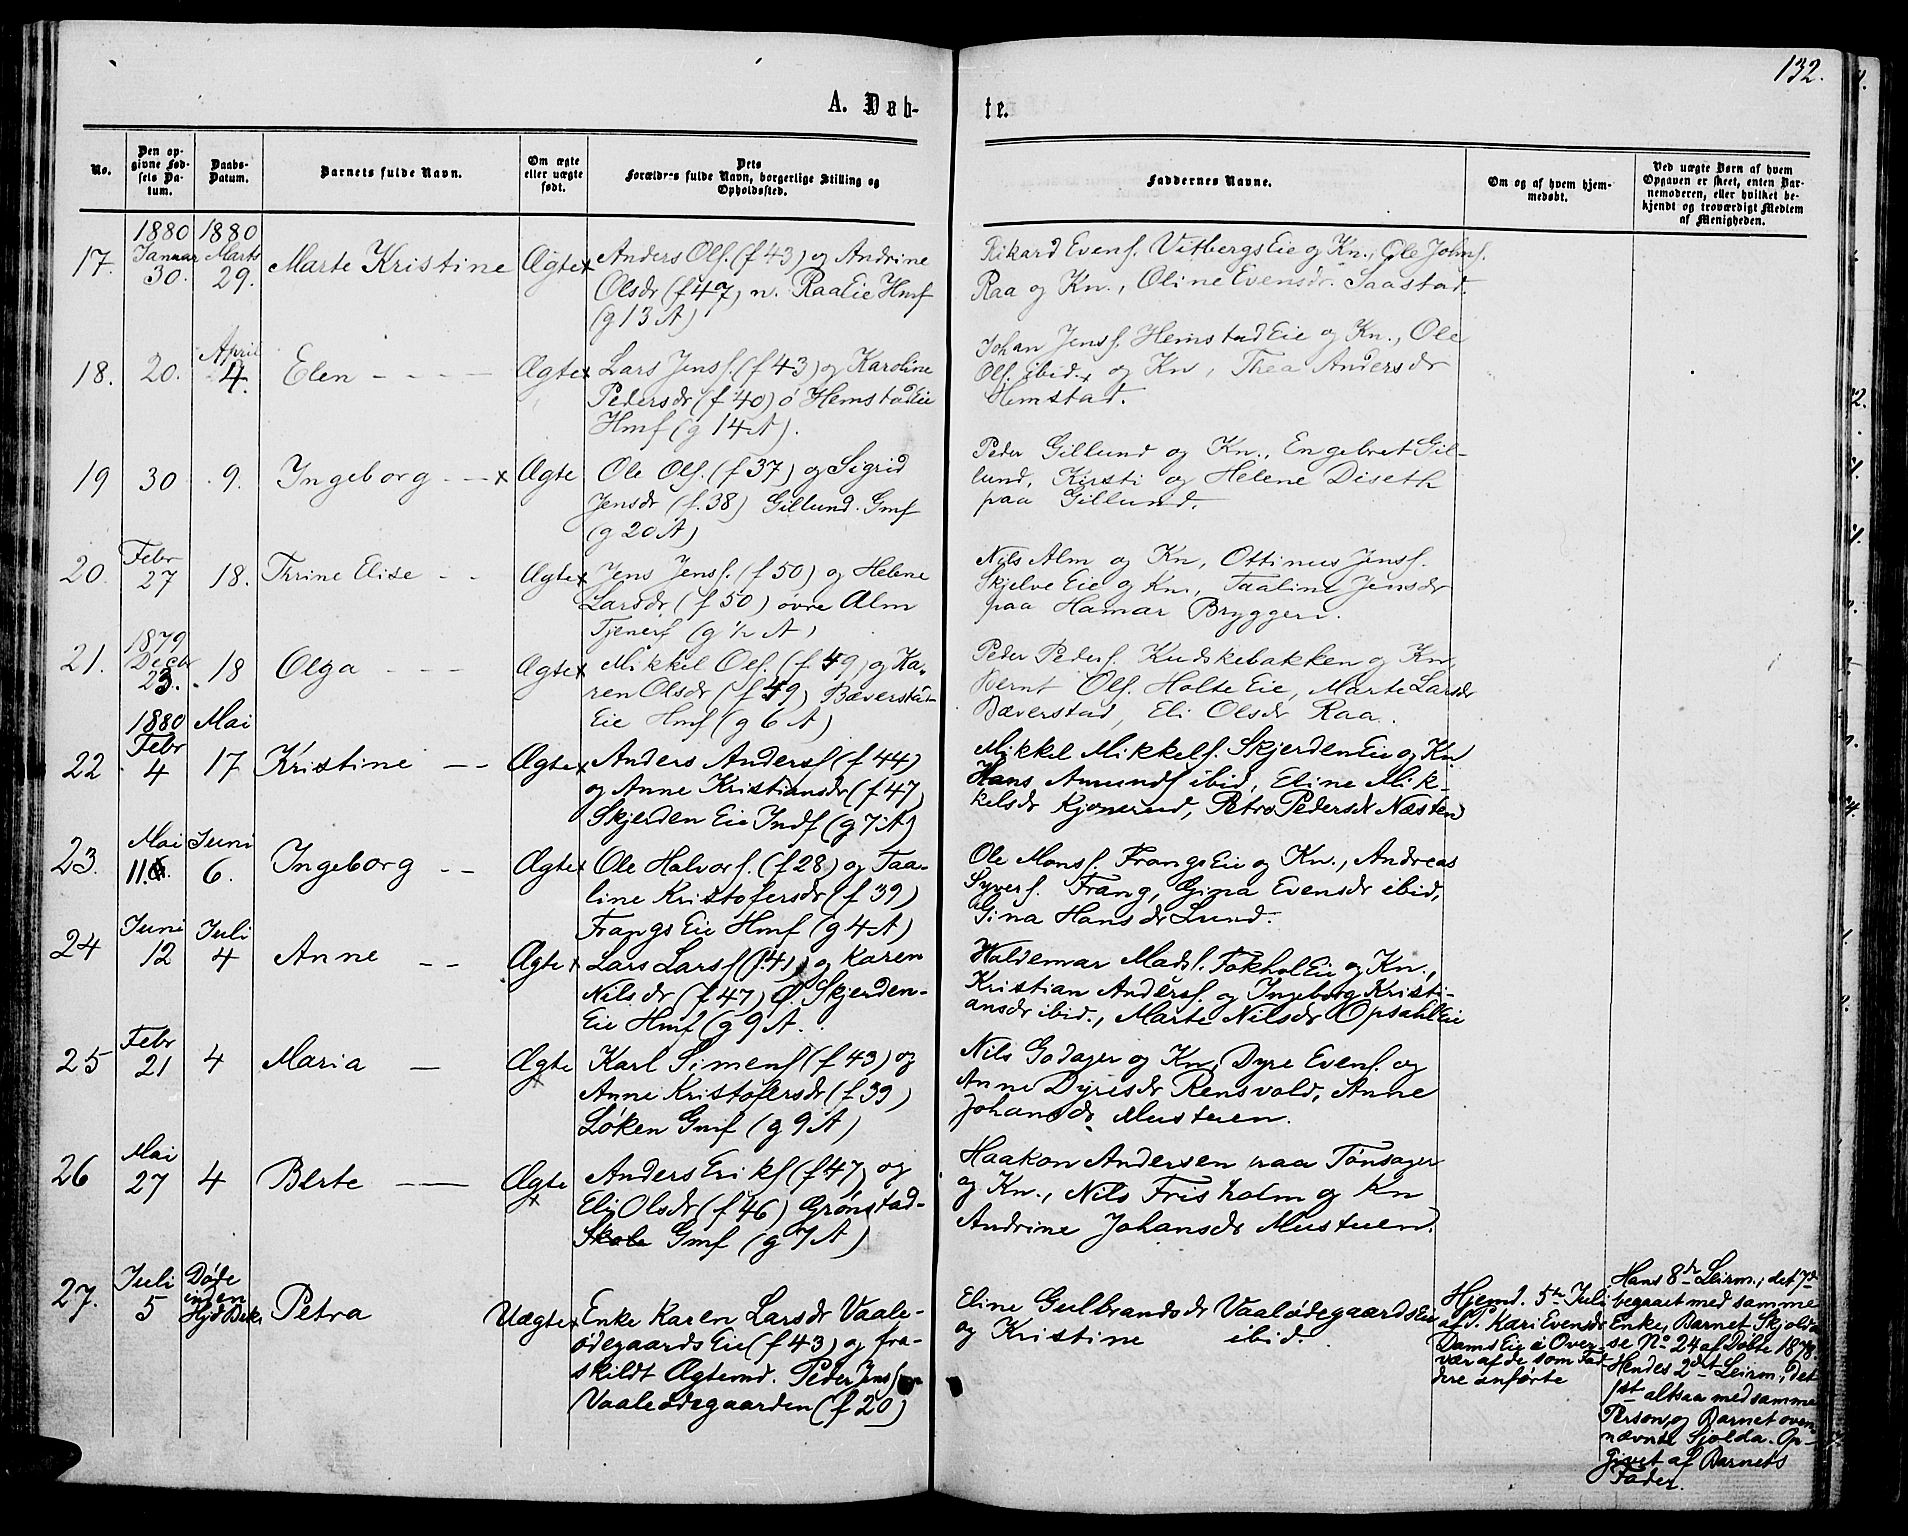 132.
A. Døb-
te.
No.
Den op-
givne Fød-
sels Da-
tum.
Daabs-
Datum.
Barnets fulde Navn.
Om ægte
eller uægte
født.
Dets
Forældres fulde Navn, borgerlige Stilling og
Opholdssted.
Faddernes Navne.
Om og af hvem hjem-
medøbt.
Ved uægte Børn af hvem
Opgaven er skeet, enten Bar-
nemoderen, eller hvilket be-
kjendt og troværdigt Medlem
af Menigheden.
17.
1880
Januar
30.
1880
Marts
29.
Marte Kristine
Ægte x
Anders Ols. (f 43) og Andrine
Olsdr (f 47) n. Raa Eie Hmf
(g 13 A)
Rikard Evens. Vitbergs Eie og Kn., Ole Johns.
Raa og Kn., Oline Evensdr. Saastad.
18.
20.
April
4.
Elen - - - -
Ægte x
Lars Jens. (f 43) og Karoline
Pedersdr (f 40) ø Hemstad Eie
Hmf (g 14 A).
Johan Jens. Hemstad Eie og Kn., Ole
Ols. ibid., og Kn, Thea Andersdr
Hemstad.
19
30
9.
Ingeborg - - x
Ægte
Ole Ols. (f 37) og Sigrid
Jensdr (f. 38) Gillund. Gmf
(g 20 A)
Peder Gillund og Kn., Engebret Gil-
lund, Kirsti og Helene Diseth
paa Gillund.
20.
Febr
27
18.
Thrine Elise - -
Ægte x
Jens Jens. (f 50) og Helene
Larsdr (f 50) øvre Alm
Tjenerf (g ½ A)
Nils Alm og Kn, Ottinus Jens.
Skjelve Eie og Kn., Taaline Jensdr
paa Hamar Bryggeri.
21.
1879
Decbr
23.
18
Olga - - -
Ægte x
Mikkel Ols. (f 49) og Ka-
ren Olsdr (f 49) Bæverstad-
Eie Hmf (g 6 A)
Peder Peders. Kudskebakken og Kn,
Bernt Ols. Holte Eie, Marte Larsdr
Bæverstad, Eli Olsdr Raa.
22
1880
Febr
4
Mai
17
Kristine - -
Ægte x
Anders Anders (f 44)
og Anne Kristiansdr (f 47)
Skjerden Eie Indf (g 7 A)
Mikkel Mikkels. Skjerden Eie og Kn
Hans Amunds ibid, Eline Mik-
kelsdr Kjonerud, Petra Pedersdr Næsten
23.
Mai
11.
Juni
6.
Ingeborg - -
Ægte x
Ole Halvors. (f 28) og Taa-
line Kristofersdr (f 39)
Frangs Eie Hmf (g 4 A)
Ole Mons. Frangs Eie og Kn., Andreas
Syvers. Frang, Gina Evensdr ibid,
Gina Hansdr Lund.
24
Juni
12
Juli
4
Anne - -
Ægte x
Lars Lars (f. 41) og Karen
Nilsdr (f 47) Ø. Skjerden-
Eie Hmf (g 9 A.
Waldemar Mads. Fokhol Eie og Kn.,
Kristian Anders. og Ingeborg Kristi-
ansdr ibid., Marte Nilsdr Opsahl Eie
25
Febr
21
4
Maria -
Ægte
x
Karl Simens (f 43) og
Anne Kristofersdr (f 39)
Løken Gmf (g 9 A)
Nils Godager og Kn, Dyre Evens. og
Anne Dyresdr Rensvold, Anne
Johansdr Mustuen.
26
Mai
27
4
Berte - -
Ægte
x
Anders Eriks (f 47) og
Eli Olsdr (f 46) Grønstad-
Skole Gmf (g 7 A)
Haakon Andersen paa Tønsager
og Kn., Nils Frisholm og Kn
Andrine Johansdr Mustuen.
27.
Juli
5
Døde
inden
Petra
Uægte x
Enke Karen Larsdr Vaale-
ødegaards Eie (f 43) og fra-
skildt Ægtemd. Peder Jens
Vaaleødegaarden (f 20)
Eline Gulbrandsdr Vaalødegaards Eie
og Kristine ibid.
Hjemd. 5te Juli
af P. Kari Evensdr
Dams Eie i Over-
vær af de som Fad-
dere anførte
Hans 8de Leirm., det 7de
begaaet med samme
Enke, Barnet Skjolda
se No 24 af Døbte 1878.
Hendes 2det Leirm., det
1ste altsaa med samme
Person, og Barnet oven-
nævnte Sjolda. Op-
givet af Barnets
Fader.